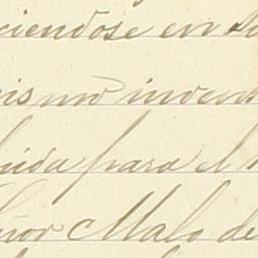 ciendose en
ismo inven
uida para el
eñor Malo de